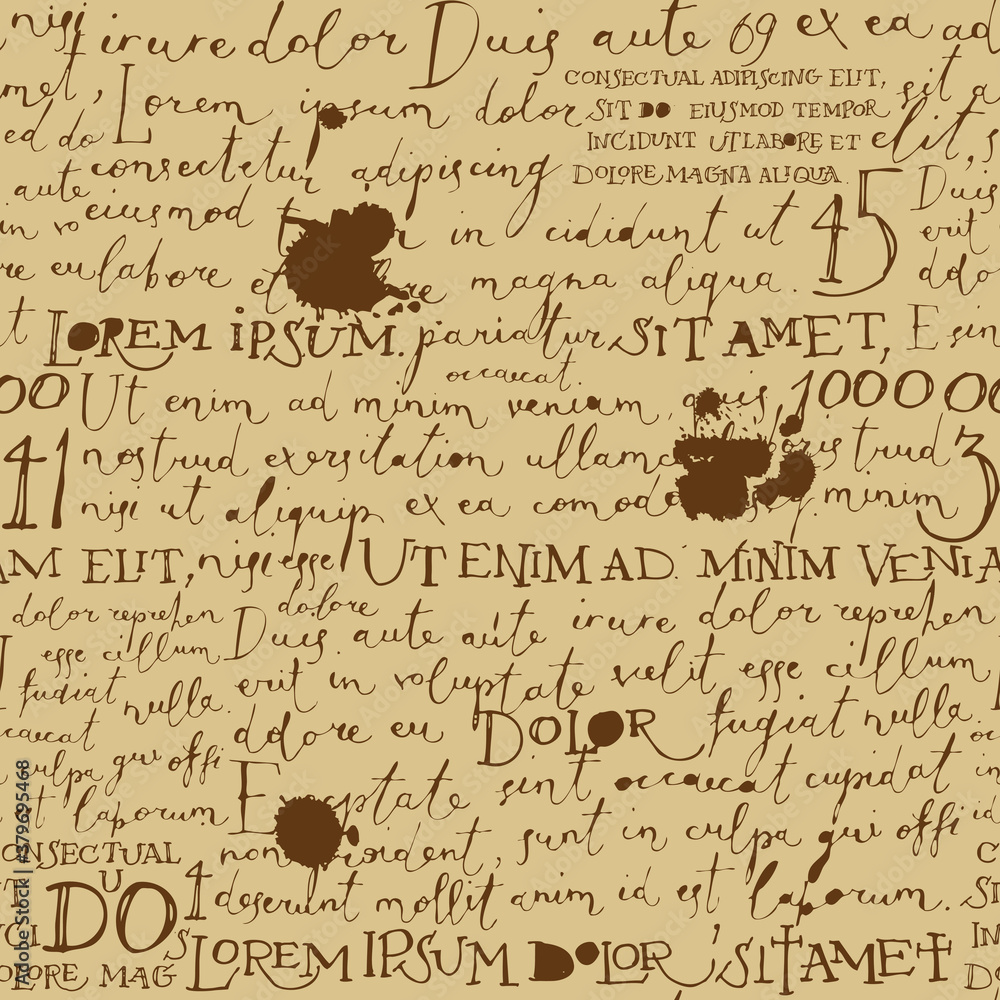 nisi irure dolor Duis aute 69 ex ea ad
CONSECTUAL ADIPISCING ELIT,
met, Lorem ipsum dolor SIT DO EIUSMOD TEMPOR sit a
ed do INCIDUNT UT LABORE ET elit, s
consectetur adipiscing DOLORE MAGNA ALIQUA. 45 Duis
aute eiusmod in cididunt ut erit
in vo
re eu labore magna aliqua. dolo
t LOREM IPSUM. pariatur SIT AMET, E sin
occaecat.
00 Ut enim ad minim veniam, quis 1000 00
41 nostrud exersitation ullamc trud 3
nisi ut aliquip ex ea comodo minim
AM ELIT, nisi esse UT ENIM AD MINIM VENIA
dolor reprehen dolore
Duis aute aute irure dolor reprehen
esse cillum
fugiat nulla. erit in voluptate velit esse cillum
caecat dolore eu DOLOR fugiat nulla. oc
culpa qui offi E ptate sint occaecat cupidat in
t laporum non oident, sunt in culpa qui offi id
ONSECTUAL C
U DO 1 deserunt mollit anim id est laporum. SI
NCI S LOREM IPSUM DOLOR SIT AMET IN
OLORE MAG D
Adobe Stock | #379695468